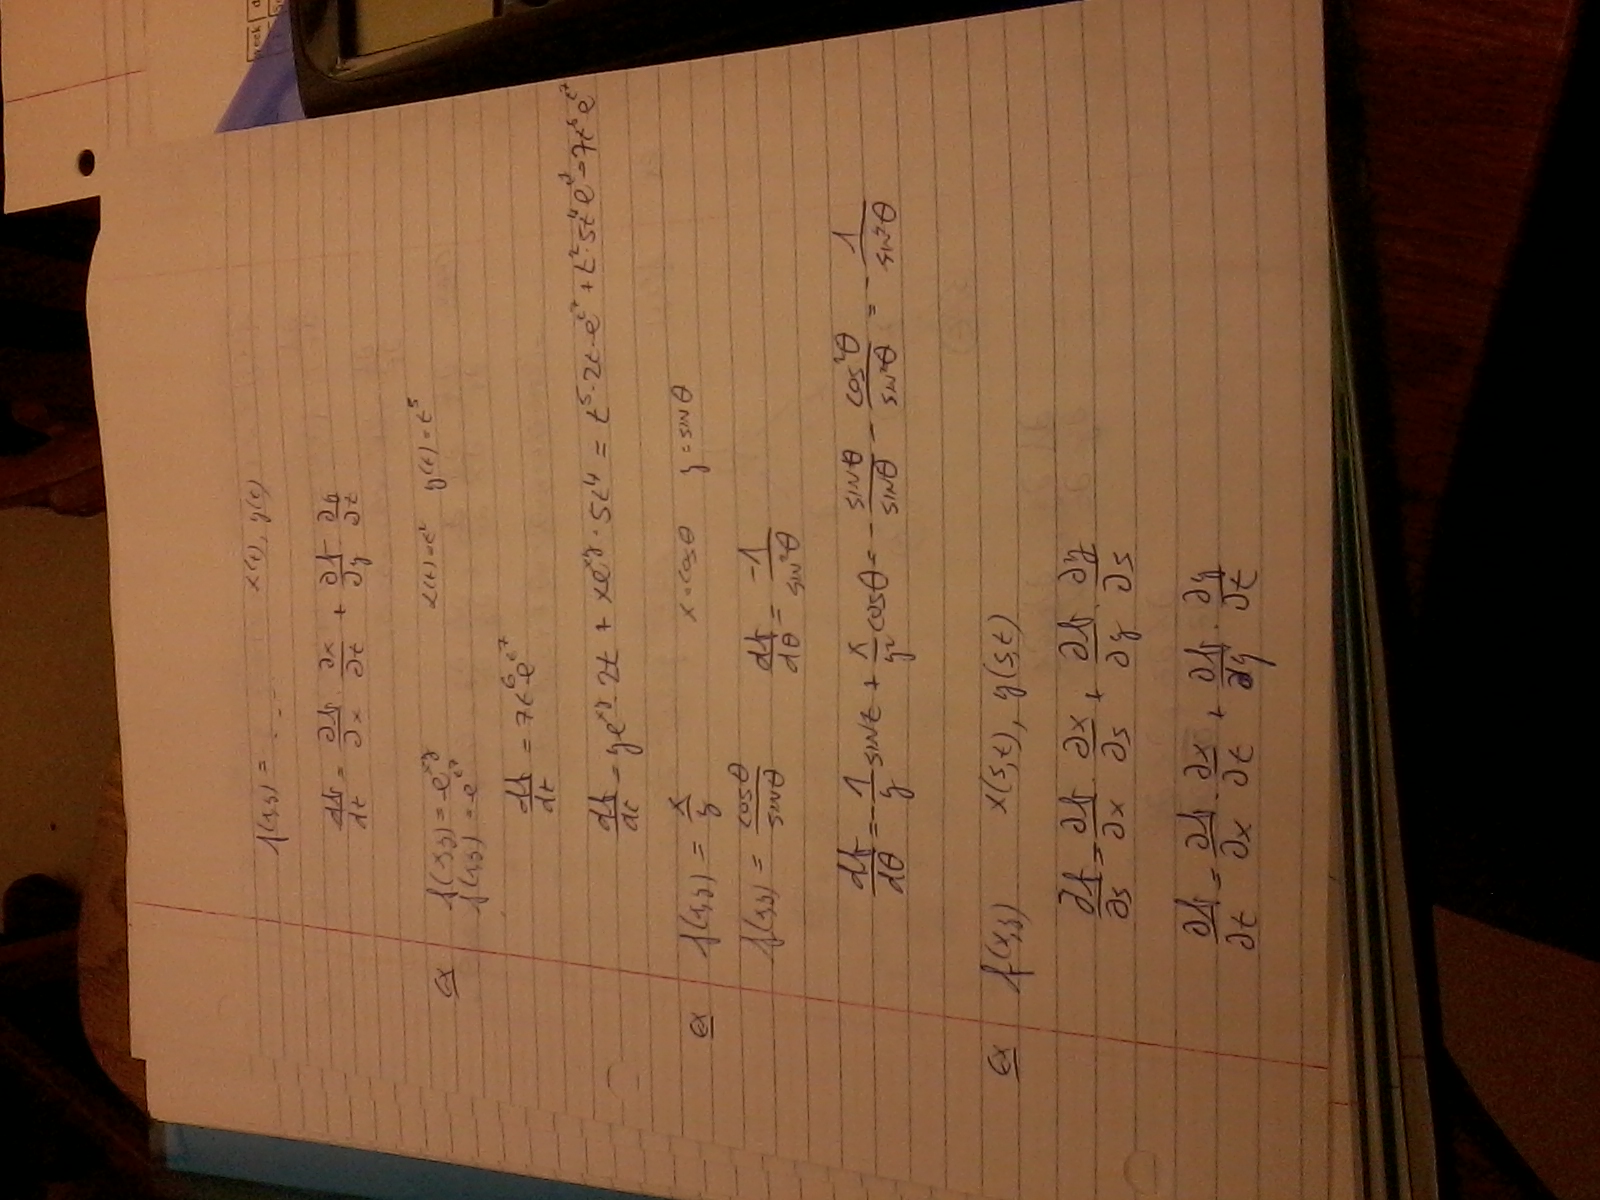 f(x,y) = ..... x(t), y(t)
df/dt = ∂f/∂x · ∂x/∂t + ∂f/∂y · ∂y/∂t
ex f(x,y) = e^{xy} x(t) = t² y(t) = t⁵
f(x,y) = e^{t⁷}
df/dt = 7t⁶e^{t⁷}
df/dt = ye^{xy} · 2t + xe^{xy} · 5t⁴ = t⁵ · 2t · e^{t⁷} + t² · 5t⁴ e^{t⁷} = 7t⁶e^{t⁷}
ex f(x,y) = x/y x = cosθ y = sinθ
f(x,y) = cosθ/sinθ df/dθ = -1/sin²θ
df/dθ = -1/y sin t + x/y² cosθ = - sinθ/sinθ - cos²θ/sin²θ = - 1/sin²θ
Ex f(x,y) x(s,t), y(s,t)
∂f/∂s = ∂f/∂x · ∂x/∂s + ∂f/∂y · ∂y/∂s
∂f/∂t = ∂f/∂x · ∂x/∂t + ∂f/∂y · ∂y/∂t
week